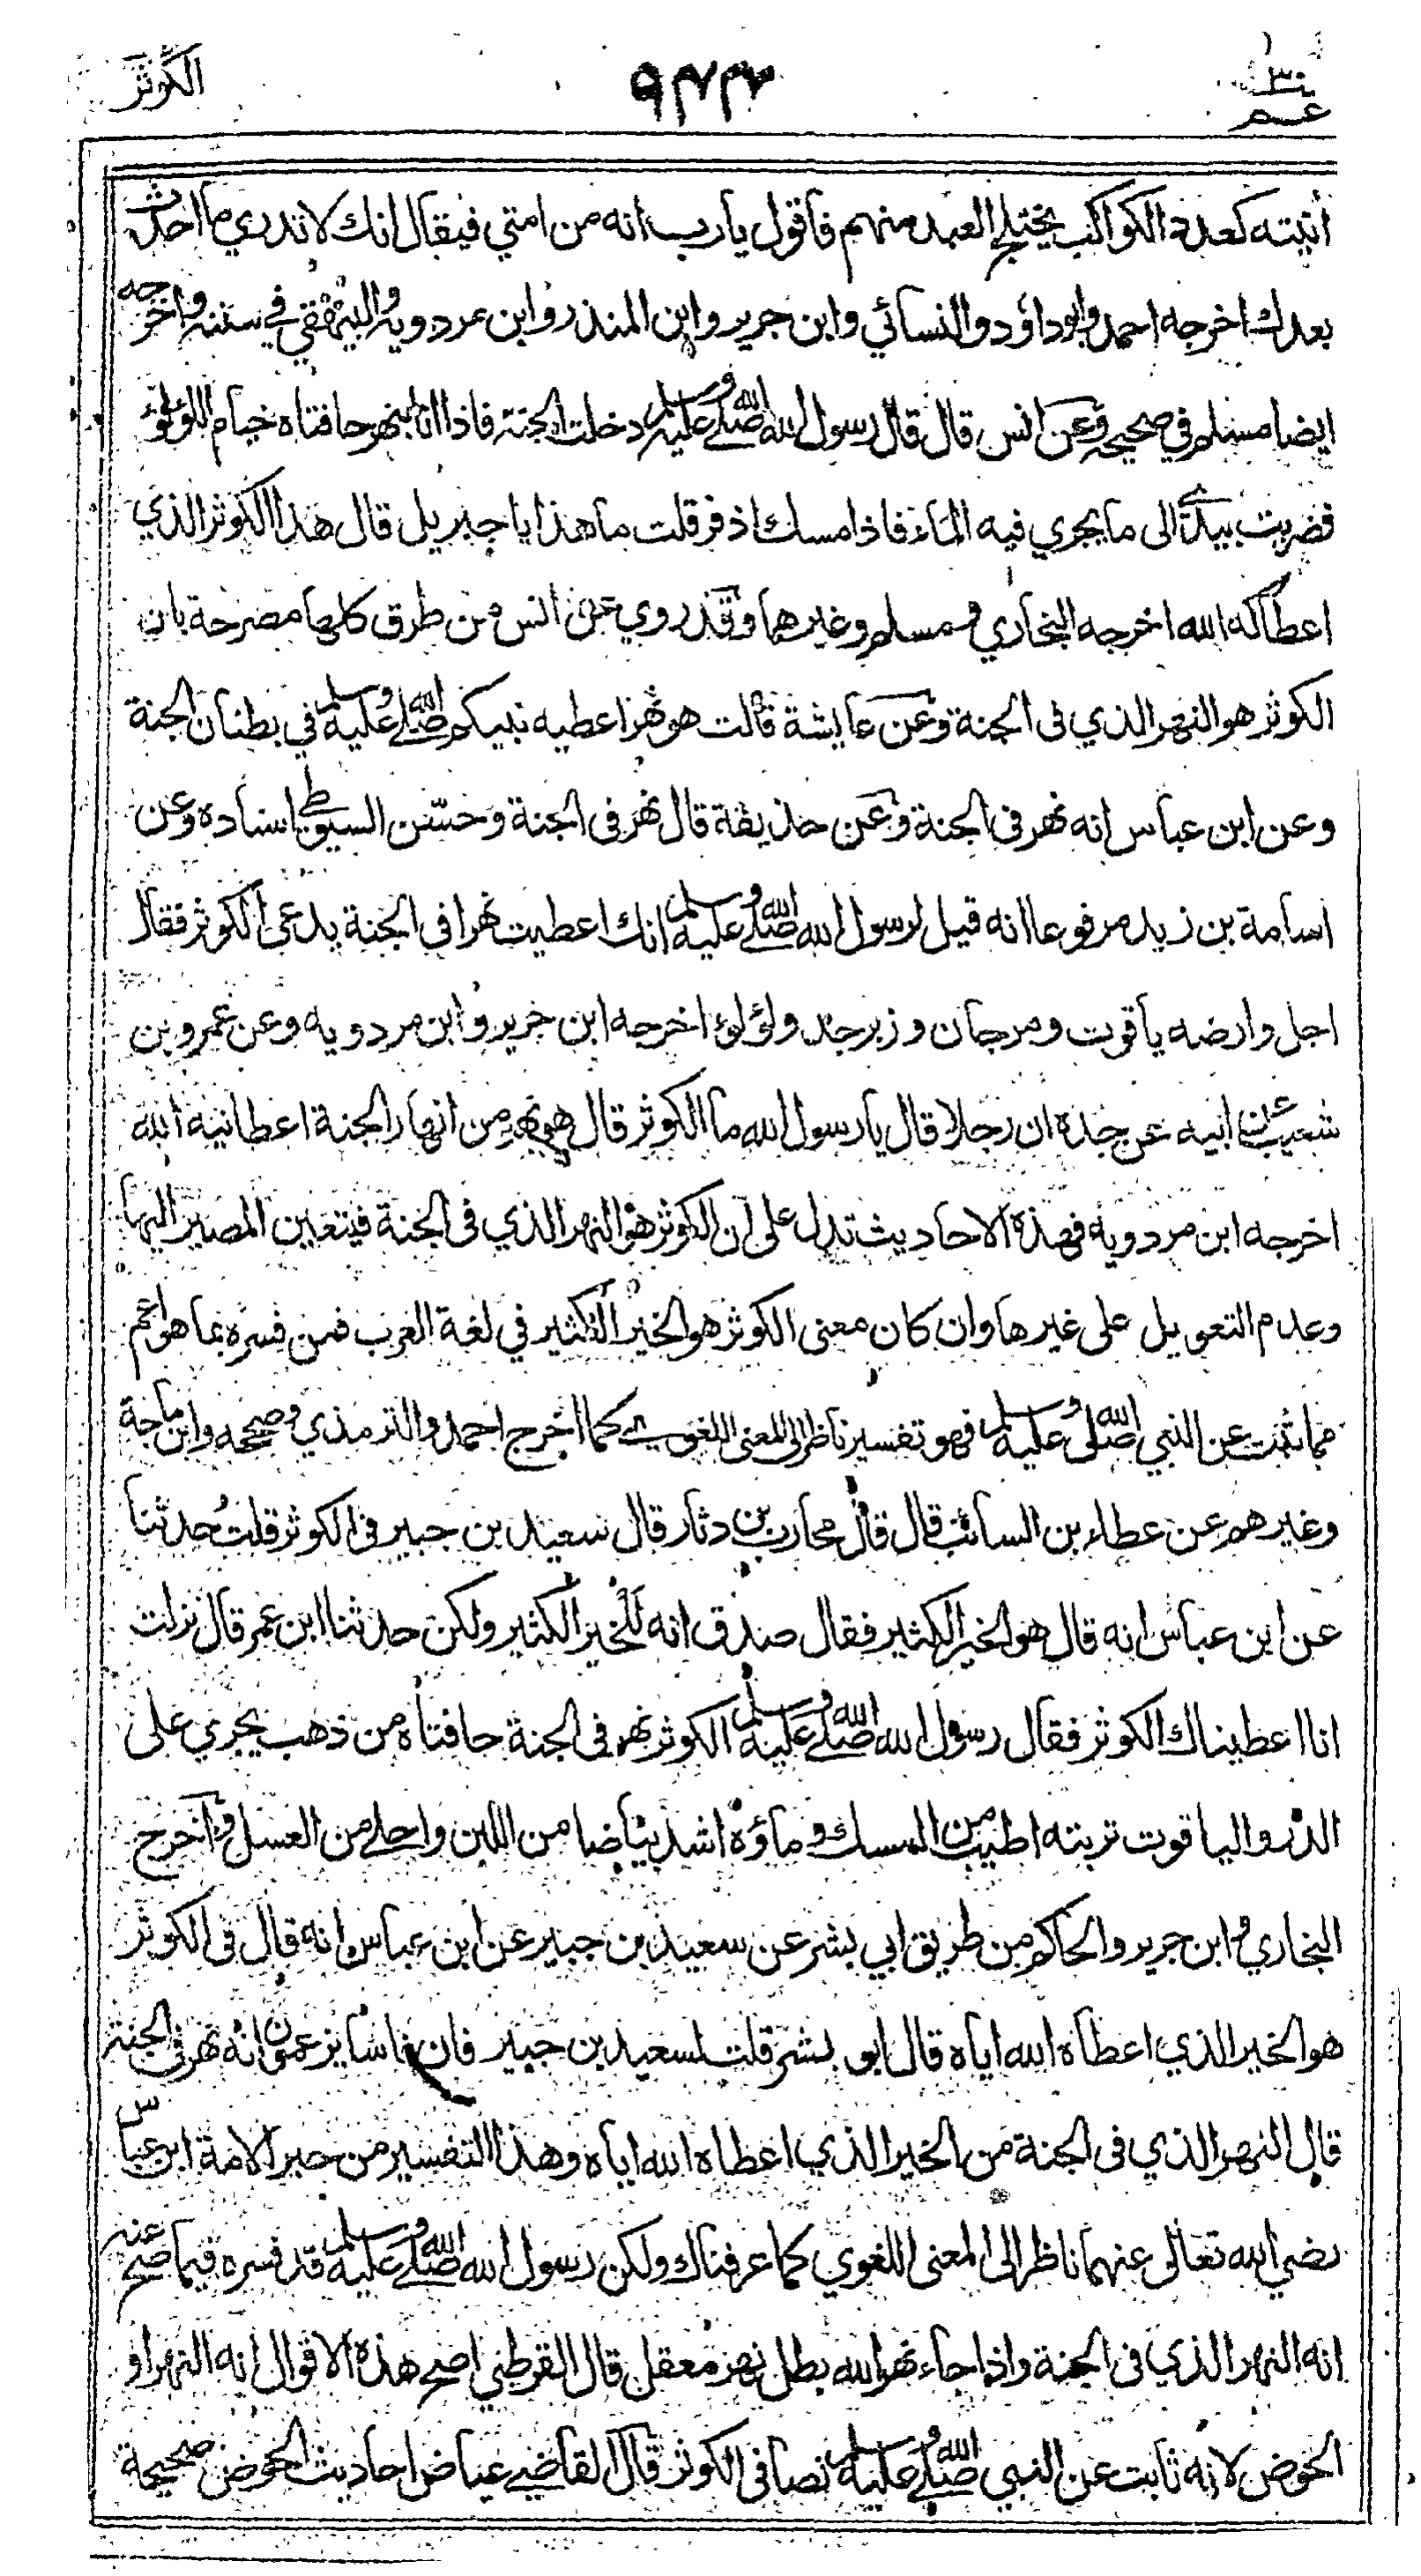 الكوثر
٩٤٣
عم ٣٠
أنيته كعدد الكواكب يختلج العبد منهم فأقول يارب انه من امتي فيقال انك لا تدري ما احدث
بعدك اخرجه احمد وابو داؤد والنسائي وابن جرير وابن المنذر وابن مردويه والبيهقي في سننه واخرجه
ايضا مسلم في صحيحه وعن انس قال قال رسول الله صلى الله عليه وسلم دخلت الجنة فاذا انا بنهر حافتاه خيام اللؤلؤ
فضربت بيدي الى ما يجري فيه الماء فاذا مسك اذفر قلت ما هذا يا جبريل قال هذا الكوثر الذي
اعطاكه الله اخرجه البخاري ومسلم وغيرهما وقد روي عن انس من طرق كلها مصرحة بان
الكوثر هو النهر الذي فى الجنة وعن عايشة قالت هو نهر اعطيه نبيكم صلى الله عليه وسلم في بطنان الجنة
وعن ابن عباس انه نهر فى الجنة وعن حذيفة قال نهر فى الجنة وحسّن السيوطي اسناده وعن
اسامة بن زيد مرفوعا انه قيل لرسول الله صلى الله عليه وسلم انك اعطيت نهرا فى الجنة يدعى الكوثر فقال
اجل وارضه ياقوت ومرجان وزبرجد ولؤلؤ اخرجه ابن جرير وابن مردويه وعن عمرو بن
شعيب عن ابيه عن جده ان رجلا قال يا رسول الله ما الكوثر قال هو نهر من انهار الجنة اعطانيه الله
اخرجه ابن مردويه فهذه الاحاديث تدل على ان الكوثر هو النهر الذي فى الجنة فيتعين المصير اليها
وعدم التعويل على غيرها وان كان معنى الكوثر هو الخير الكثير في لغة العرب فمن فسره بما هو اعم
مما ثبت عن النبي صلى الله عليه وسلم فهو تفسير ناظر الى المعنى اللغوي كما اخرج احمد والترمذي وصححه وابن ماجة
وغيرهم عن عطاء بن السائب قال قال محارب بن دثار قال سعيد بن جبير فى الكوثر قلت حدثنا
عن ابن عباس انه قال هو الخير الكثير فقال صدق انه للخير الكثير ولكن حدثنا ابن عمر قال نزلت
انا اعطيناك الكوثر فقال رسول الله صلى الله عليه وسلم الكوثر نهر فى الجنة حافتاه من ذهب يجري على
الدر والياقوت تربته اطيب من المسك وماؤه اشد بياضا من اللبن واحلى من العسل واخرج
البخاري وابن جرير والحاكم من طريق ابي بشر عن سعيد بن جبير عن ابن عباس انه قال فى الكوثر
هو الخير الذي اعطاه الله اياه قال ابو بشر قلت لسعيد بن جبير فان ناسا يزعمون انه نهر فى الجنة
قال النهر الذي فى الجنة من الخير الذي اعطاه الله اياه وهذا التفسير من حبر الامة ابن عباس
رضي الله تعالى عنهما ناظر الى المعنى اللغوي كما عرفناك ولكن رسول الله صلى الله عليه وسلم قد فسره فيما صح عنه
انه النهر الذي فى الجنة واذا جاء نهر الله بطل نهر معقل قال القرطبي اصح هذه الاقوال انه النهر او
الحوض لانه ثابت عن النبي صلى الله عليه وسلم نصا فى الكوثر قال القاضي عياض احاديث الحوض صحيحة